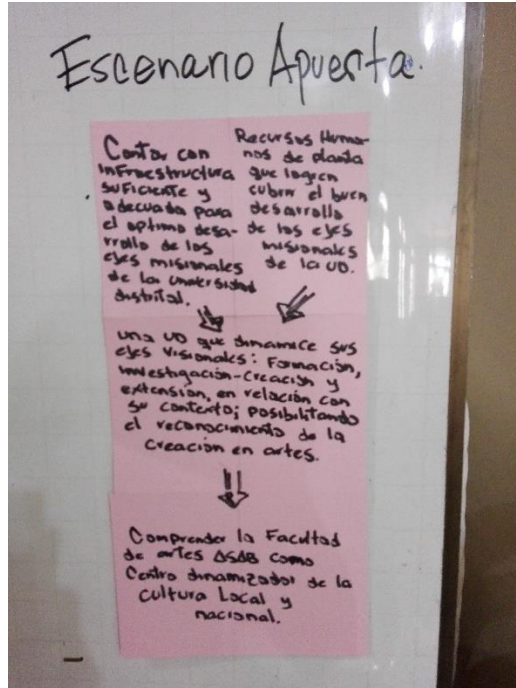 Escenario Apuesta.
Contar con
infraestructura
suficiente y
adecuada para
el optimo desa-
rrollo de los
ejes misionales
de la universidad
distrital.
Recursos Huma-
nos de planta
que logren
cubrir el buen
desarrollo
de los ejes
misionales
de la UD.
una UD que dinamice sus
ejes visionales: Formación,
investigación-Creación y
extensión, en relación con
su contexto; posibilitando
el reconocimiento de la
Creación en artes.
Comprender la Facultad
de artes ASAB como
Centro dinamizador de la
cultura Local y
nacional.